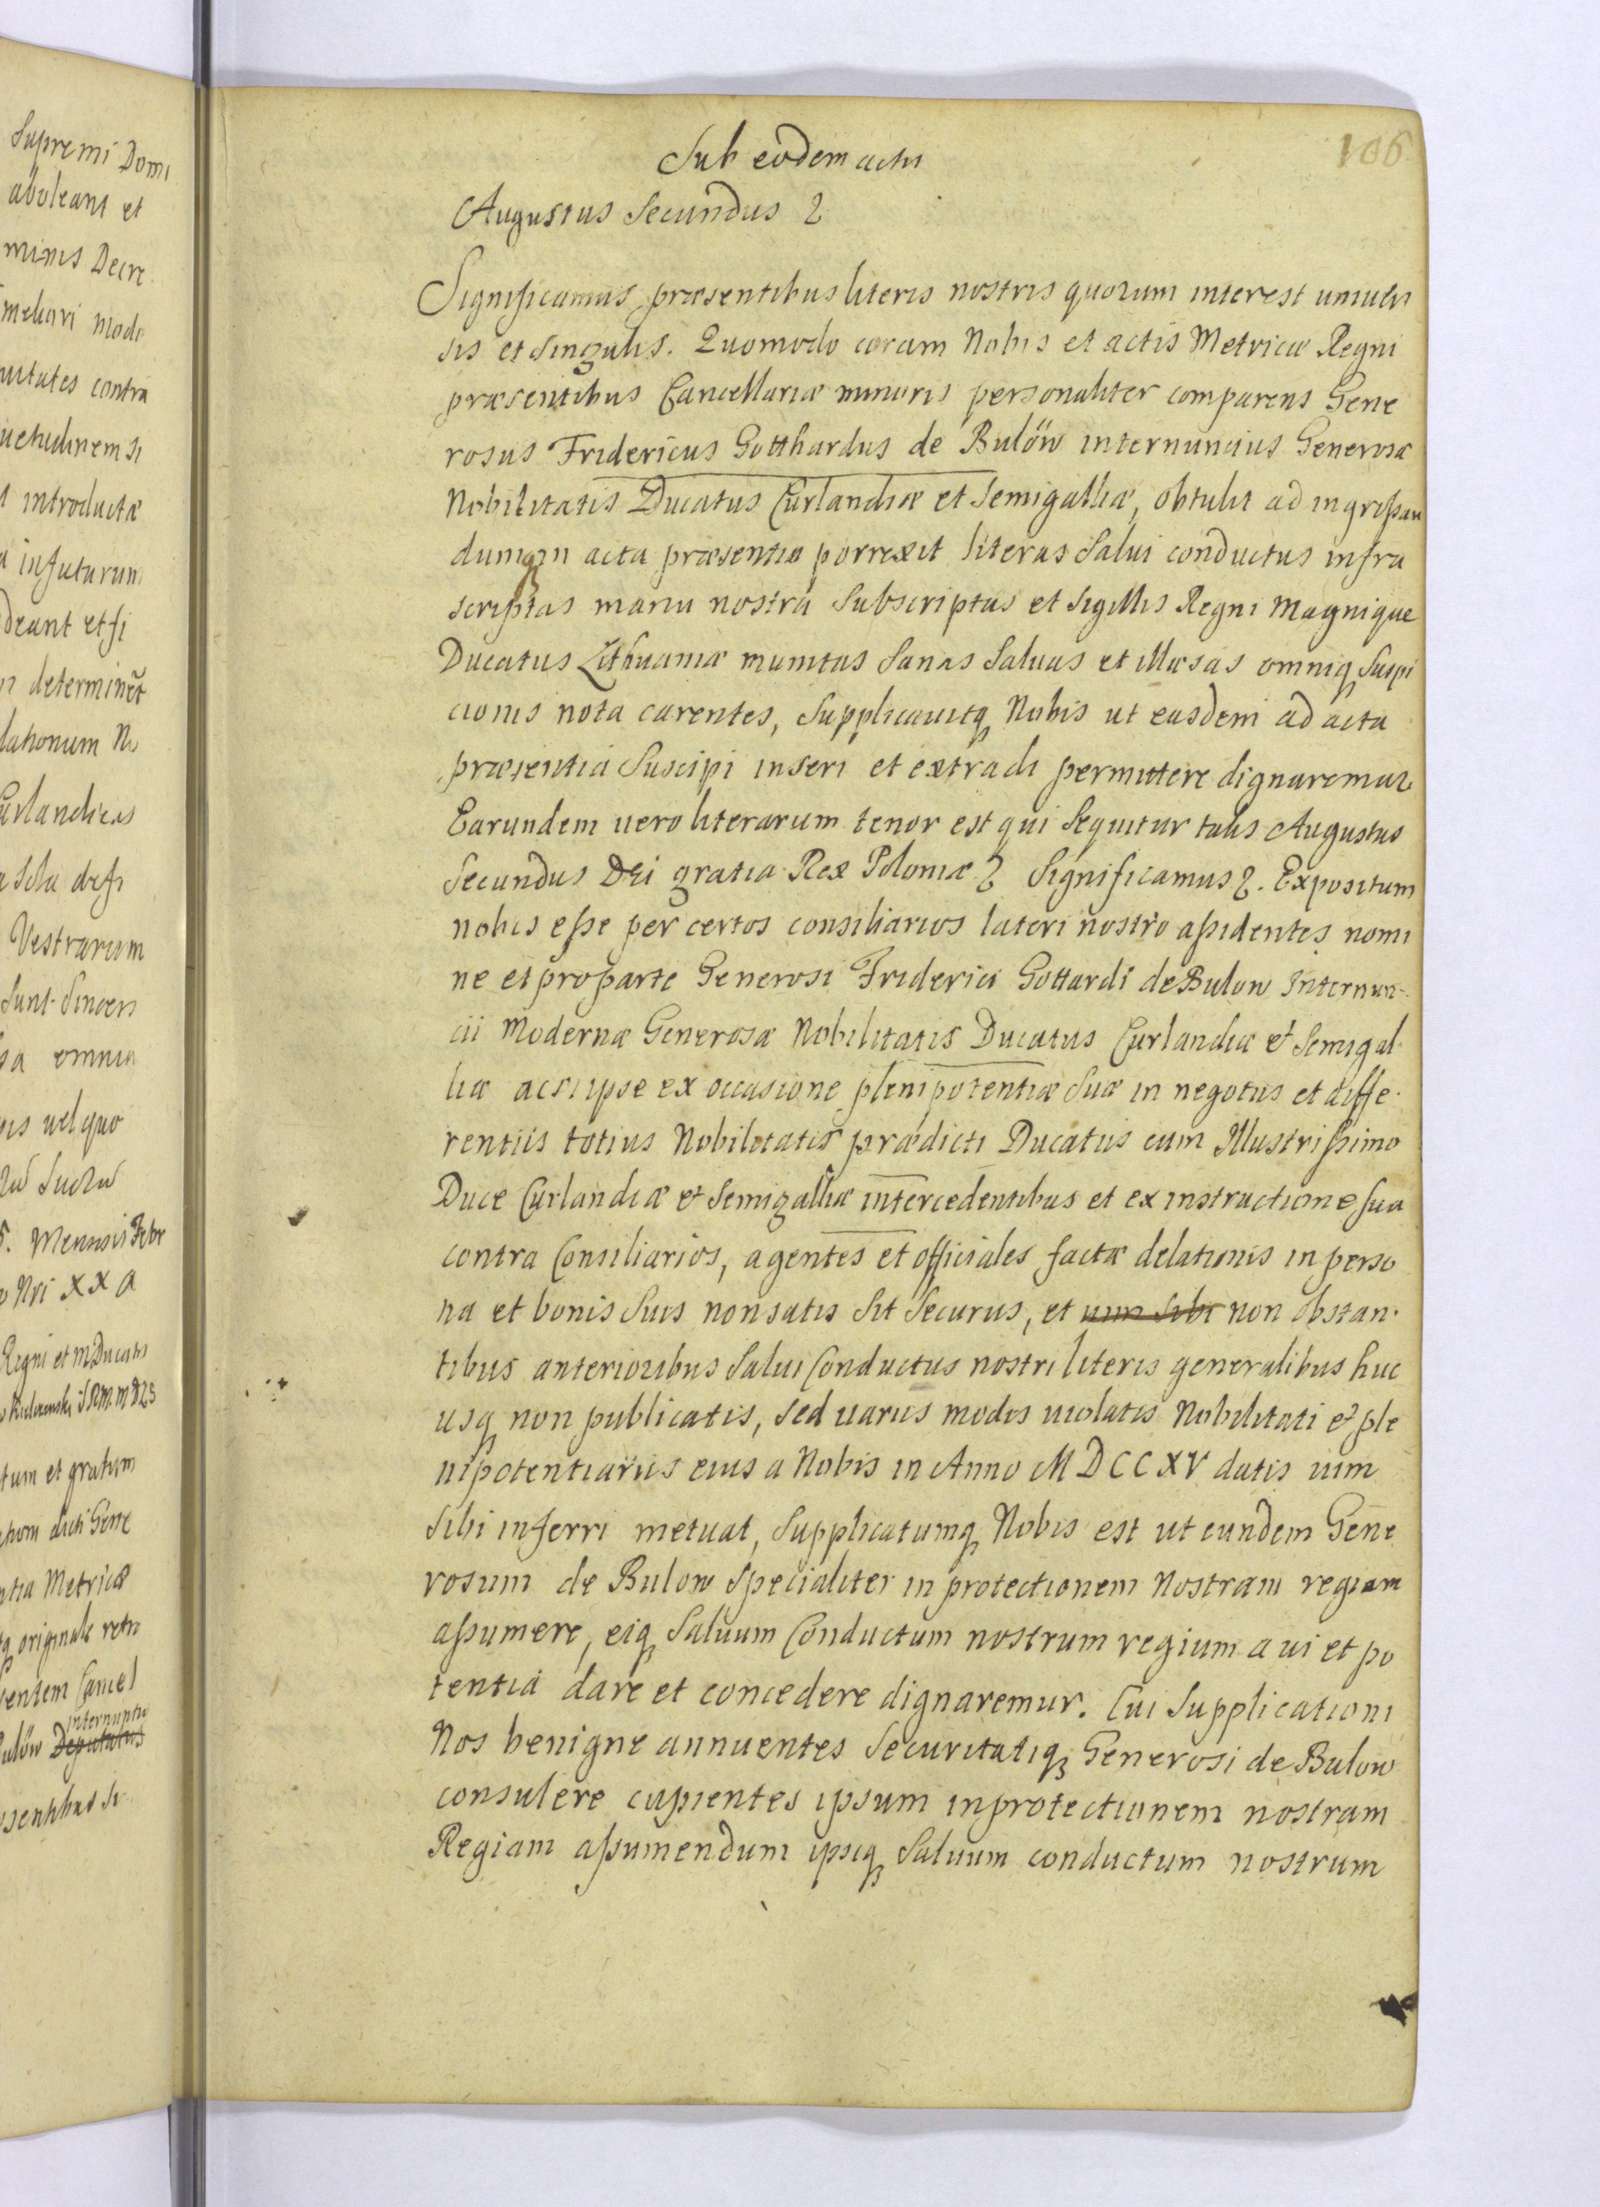 Supremi Domi
aboleant et
minis Decre
meliori modo
uitates contra
uetudinem si
introductæ
infuturum
deant etsi
determinet
lationum No
Curlandicas
Vestrarum
Sunt Sinceri
omnia
uel quo
5. Mensis Febr
Nri XX a
Regni et M Ducatus
tum et gratum
dicti Gene
ntia Metricæ
originale
entem Cancel
internuntii
Bulöw Deputatus
106
Sub eodem actu
Augustus Secundus 2
Significamus præsentibus literis nostris quorum interest uniuer
sis et singulis. Quomodo coram Nobis et actis Metricæ Regni
præsentibus Cancellariæ minoris personaliter comparens Gene
rosus Fridericus Gotthardus de Bulöw internuncius Generosæ
Nobilitatis Ducatus Curlandiæ et Semigalliæ, obtulit ad ingrossan
dumq in acta præsentia porrexit literas Salui conductus infra
scriptas manu nostra Subscriptas et Sigillis Regni Magnique
Ducatus Lithuaniæ munitas Sanas Saluas et illæsas omniq Suspi
cionis nota carentes, Supplicauitq Nobis ut easdem ad acta
præsentia Suscipi inseri et extradi permittere dignaremur
Earundem uero literarum tenor est qui Sequitur talis Augustus
Secundus Dei gratia Rex Poloniæ 2 Significamus 2. Expositum
nobis esse per certos consiliarios lateri nostro assidentes nomi
ne et pro parte Generosi Friderici Gottardi de Bulow Internun-
cii Modernæ Generosæ Nobilitatis Ducatus Curlandiæ et Semigal-
liæ acsi ipse ex occasione plenipotentiæ Suæ in negotiis et diffe-
rentiis totius Nobilitatis prædicti Ducatus cum Illustrissimo
Duce Curlandiæ et Semigalliæ intercedentibus et ex instructione sua
contra Consiliarios, agentes et officiales factæ delationis in perso
na et bonis Suis non satis Sit Securus, et uim sibi non obstan-
tibus anterioribus Salui Conductus nostri literis generalibus huc
usq non publicatis, Sed uariis modis uiolatis Nobilitati et ple
nipotentiariis eius a Nobis in Anno MDCCXV datis uim
Sibi inferri metuat, Supplicatumq Nobis est ut eundem Gene
rosum de Bulow Specialiter in protectionem Nostram regiam
assumere, eiq Saluum Conductum nostrum regium a ui et po
tentia dare et concedere dignaremur. Cui Supplicationi
Nos benigne annuentes Securitatiq Generosi de Bulow
consulere cupientes ipsum in protectionem nostram
Regiam assumendum ipsiq Saluum conductum nostrum